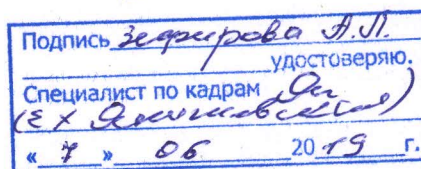 Подпись Зефирова А.П.
удостоверяю.
Специалист по кадрам
« 7 » 06 20 19 г.